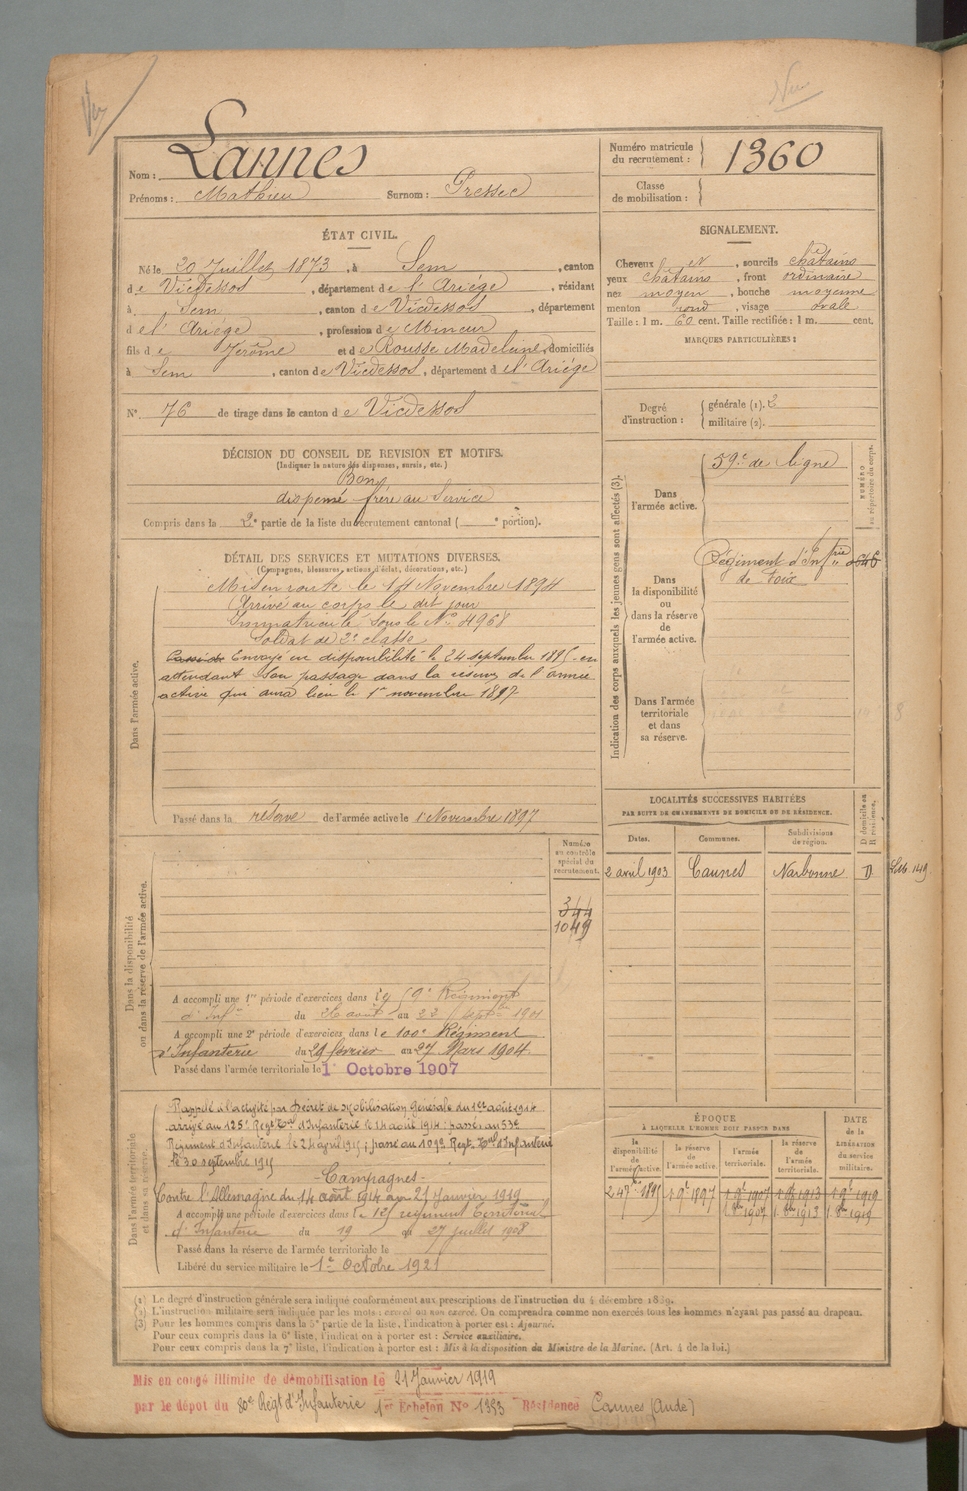 Nom : Lannes
Prénoms : Mathieu Surnom : Pressec
Numéro matricule du recrutement : 1360
Classe de mobilisation :
ÉTAT CIVIL.
Né le 20 Juillet 1873, à Sem, canton
de Vicdessos, département de l'Ariége, résidant
à Sem, canton de Vicdessos, département
de l'Ariége, profession de Mineur
fils de Jérôme et de Rousse Madeleine, domiciliés
à Sem, canton de Vicdessos, département de l'Ariége
N° 76 de tirage dans le canton de Vicdessos
SIGNALEMENT.
Cheveux et, sourcils châtains
yeux châtains, front ordinaire
nez moyen, bouche moyenne
menton rond, visage ovale
Taille : 1 m. 60 cent. Taille rectifiée : 1 m. cent.
MARQUES PARTICULIÈRES :
Degré d'instruction : générale (1). 2
militaire (2).
DÉCISION DU CONSEIL DE REVISION ET MOTIFS.
(Indiquer la nature des dispenses, sursis, etc.)
Bon
dispensé frère au Service
Compris dans la 2e partie de la liste du recrutement cantonal ( e portion).
DÉTAIL DES SERVICES ET MUTATIONS DIVERSES.
(Campagnes, blessures, actions d'éclat, décorations, etc.)
Dans l'armée active.
Mis en route le 14 Novembre 1894
Arrivé au corps le dit jour
Immatriculé sous le N° 4968
Soldat de 2e classe
Envoyé en disponibilité le 24 septembre 1895 en
attendant son passage dans la réserve de l'armée
active qui aura lieu le 1er novembre 1897
Passé dans la réserve de l'armée active le 1 Novembre 1897
Indication des corps auxquels les jeunes gens sont affectés (3).
NUMÉRO au répertoire du corps.
Dans l'armée active.
59e de ligne
Dans la disponibilité ou dans la réserve de l'armée active.
Régiment d'Infrie
de Foix
Dans l'armée territoriale et dans sa réserve.
LOCALITÉS SUCCESSIVES HABITÉES
PAR SUITE DE CHANGEMENTS DE DOMICILE OU DE RÉSIDENCE.
Dates. Communes. Subdivisions de région. D domicile ou R résidence.
2 avril 1903 Caunes Narbonne D
Dans la disponibilité ou dans la réserve de l'armée active.
Numéro au contrôle spécial du recrutement.
344
1049
A accompli une 1re période d'exercices dans le 59e Régiment
d'Infie du 26 août au 22 septbre 1901
A accompli une 2e période d'exercices dans le 100e Régiment
d'Infanterie du 29 février au 27 Mars 1904
Passé dans l'armée territoriale le 1r Octobre 1907
Dans l'armée territoriale et dans sa réserve.
Rappelé à l'activité par Décret de Mobilisation Générale du 1er août 1914
arrivé au 125e Regt Tal d'Infanterie le 14 août 1914 ; passé au 53e
Régiment d'Infanterie le 24 1915 ; passé au 109e Regt Tal d'Infanterie
le 30 septembre 1915
- Campagnes -
Contre l'Allemagne du 14 août 1914 au 21 Janvier 1919
A accompli une période d'exercices dans le 125 régiment Territorial
d'Infanterie du 19 au 27 juillet 1908
Passé dans la réserve de l'armée territoriale le
Libéré du service militaire le 1er Octobre 1921
ÉPOQUE
À LAQUELLE L'HOMME DOIT PASSER DANS
la disponibilité de l'armée active. la réserve de l'armée active. l'armée territoriale. la réserve de l'armée territoriale.
DATE de la LIBÉRATION du service militaire.
24 7bre 1895 1 9e 1897 1 9e 1907 1 9e 1913 1 9e 1919
1 8bre 1907 1 8bre 1913 1 8bre 1919
(1) Le degré d'instruction générale sera indiqué conformément aux prescriptions de l'instruction du 4 décembre 1889.
(2) L'instruction militaire sera indiquée par les mots : exercé ou non exercé. On comprendra comme non exercés tous les hommes n'ayant pas passé au drapeau.
(3) Pour les hommes compris dans la 5e partie de la liste, l'indication à porter est : Ajourné.
Pour ceux compris dans la 6e liste, l'indication à porter est : Service auxiliaire.
Pour ceux compris dans la 7e liste, l'indication à porter est : Mis à la disposition du Ministre de la Marine. (Art. 4 de la loi.)
Mis en congé illimité de démobilisation le 21 Janvier 1919
par le dépot du 80e Régt d'Infanterie 1er Echelon N° 1393 Résidence Caunes (Aude)